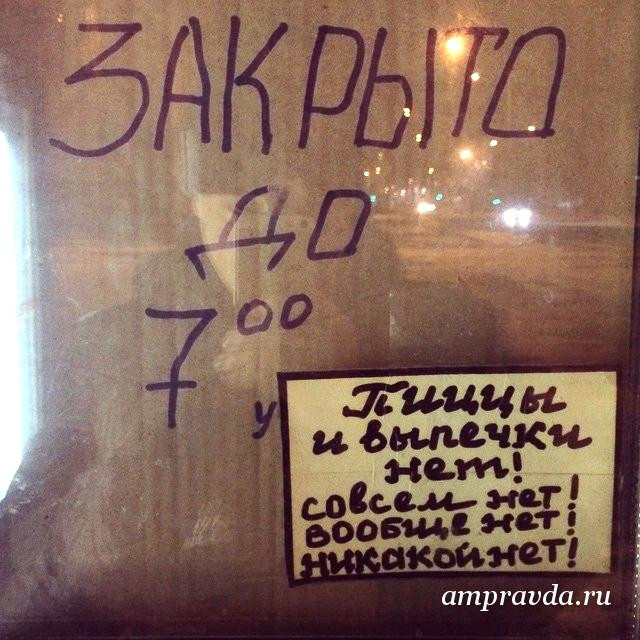 ЗАКРЫТО
ДО
7 00
у
Пиццы
и выпечки
нет!
совсем нет!
вообще нет!
никакой нет!
ampravda.ru